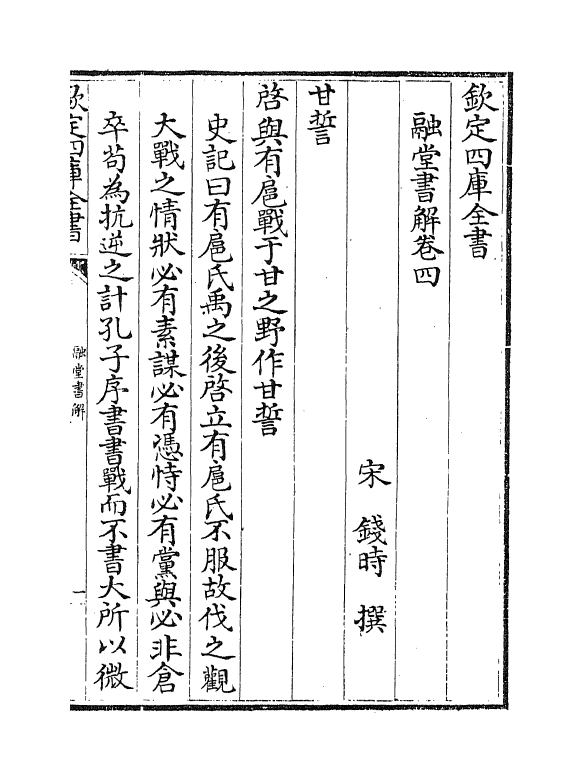 欽定四庫全書
融堂書解卷四
宋　錢時　撰
甘誓
啓與有扈戰于甘之野作甘誓
史記曰有扈氏禹之後啓立有扈氏不服故伐之觀
大戰之情狀必有素謀必有憑恃必有黨與必非倉
卒苟為抗逆之計孔子序書書戰而不書大所以微
欽定四庫全書
融堂書解
一